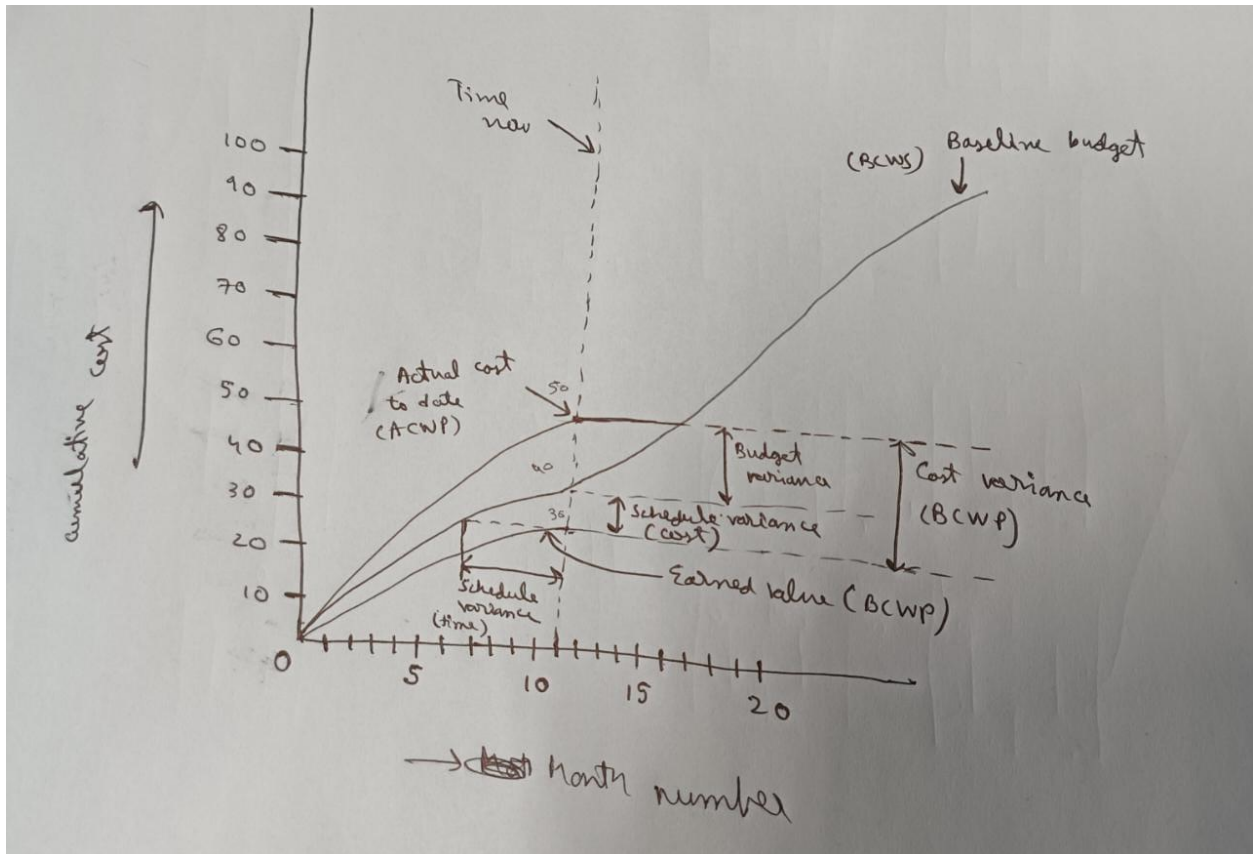 Time
now
(BCWS) Baseline budget
100
90
80
70
60
50
40
30
20
10
0
cumulative cost
Actual cost
to date
(ACWP)
50
40
30
Budget
variance
Cost variance
(BCWP)
Schedule variance
(cost)
Earned value (BCWP)
Schedule
variance
(time)
5
10
15
20
Month number